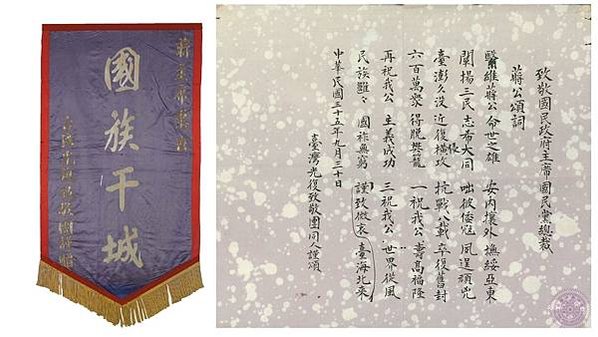 蔣主席
國族干城
臺灣光復致敬團謹贈
致敬國民政府主席國民黨總裁
蔣公頌詞
繄維蔣公 命世之雄 安內攘外 撫綏亞東
闡揚三民 志希大同 咄彼倭寇 夙逞頑兇
臺澎久沒 近復橫攻 抗戰八載 卒復舊封
六百萬眾 得脫樊籠 一祝我公 壽高福隆
再祝我公 主義成功 三祝我公 世界從風
民族雖々 國祚無窮 謹致微衷 臺海北來
中華民國三十五年九月三十日
臺灣光復致敬團同人謹頌